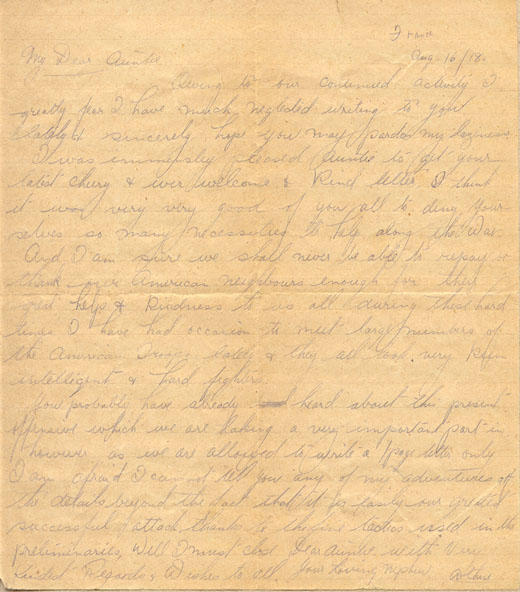 France
Aug. 16/18.
My Dear Auntie
Owing to our continued activity I
greatly fear I have much neglected writing to you
lately & sincerely hope you may pardon my laziness
I was immensly pleased Auntie to get your
latest cheery & ever welcome & Kind letter I think
it was very very good of you all to deny your-
selves so many necessities to help along the War.
And I am sure we shall never be able to repay or
thank our American neighbours enough for their
great help & kindness to us all during these hard
times I have had occasion to meet large numbers of
the American Troops lately & they all look very keen
intelligent & hard fighters.
You probably have already heard about this present
offensive which we are having a very important part in
however as we are allowed to write a 1 page letter only
I am afraid I cannot tell you any of my adventures or
the details beyond the fact that it is easily our greatest
successful attack thanks to the fine tactics used in the
preliminaries, Well I must close Dear Auntie with Very
Kindest Regards & Wishes to all. Your Loving Nephew